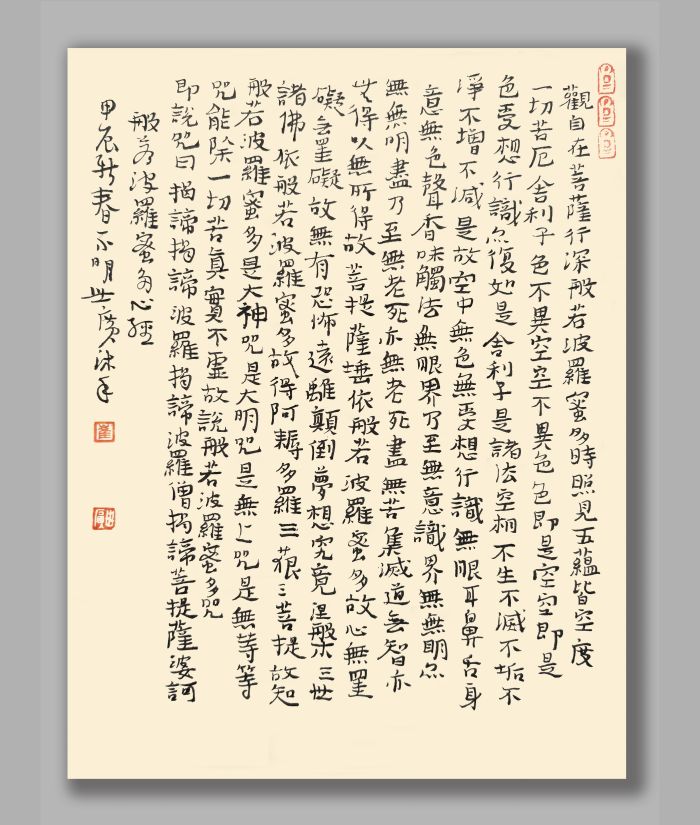 觀自在菩薩行深般若波羅蜜多時照見五蘊皆空度
一切苦厄舍利子色不異空空不異色色即是空空即是
色受想行識亦復如是舍利子是諸法空相不生不滅不垢不
淨不增不減是故空中無色無受想行識無眼耳鼻舌身
意無色聲香味觸法無眼界乃至無意識界無無明亦
無無明盡乃至無老死亦無老死盡無苦集滅道无智亦
无得以無所得故菩提薩埵依般若波羅蜜多故心無罣
礙无罣礙故無有恐怖遠離顛倒夢想究竟涅槃三世
諸佛依般若波羅蜜多故得阿耨多羅三藐三菩提故知
般若波羅蜜多是大神咒是大明咒是無上咒是無等等
咒能除一切苦真實不虛故說般若波羅蜜多咒
即說咒曰揭諦揭諦波羅揭諦波羅僧揭諦菩提薩婆訶
般若波羅蜜多心經
甲辰新春